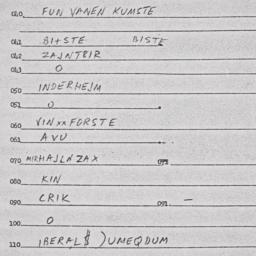 040 FUN VANEN KUMSTE
041 BISTE BISTE
042 ZAJNTBIR
043 O
050 INDERHEJM
051 O
060 VINxxFORSTE
061 AVU
070 MIRHAJLNZAX 071
080 KIN
090 CRIK 091 –
100 O
110 IBERAL$ ) UMEQDUM